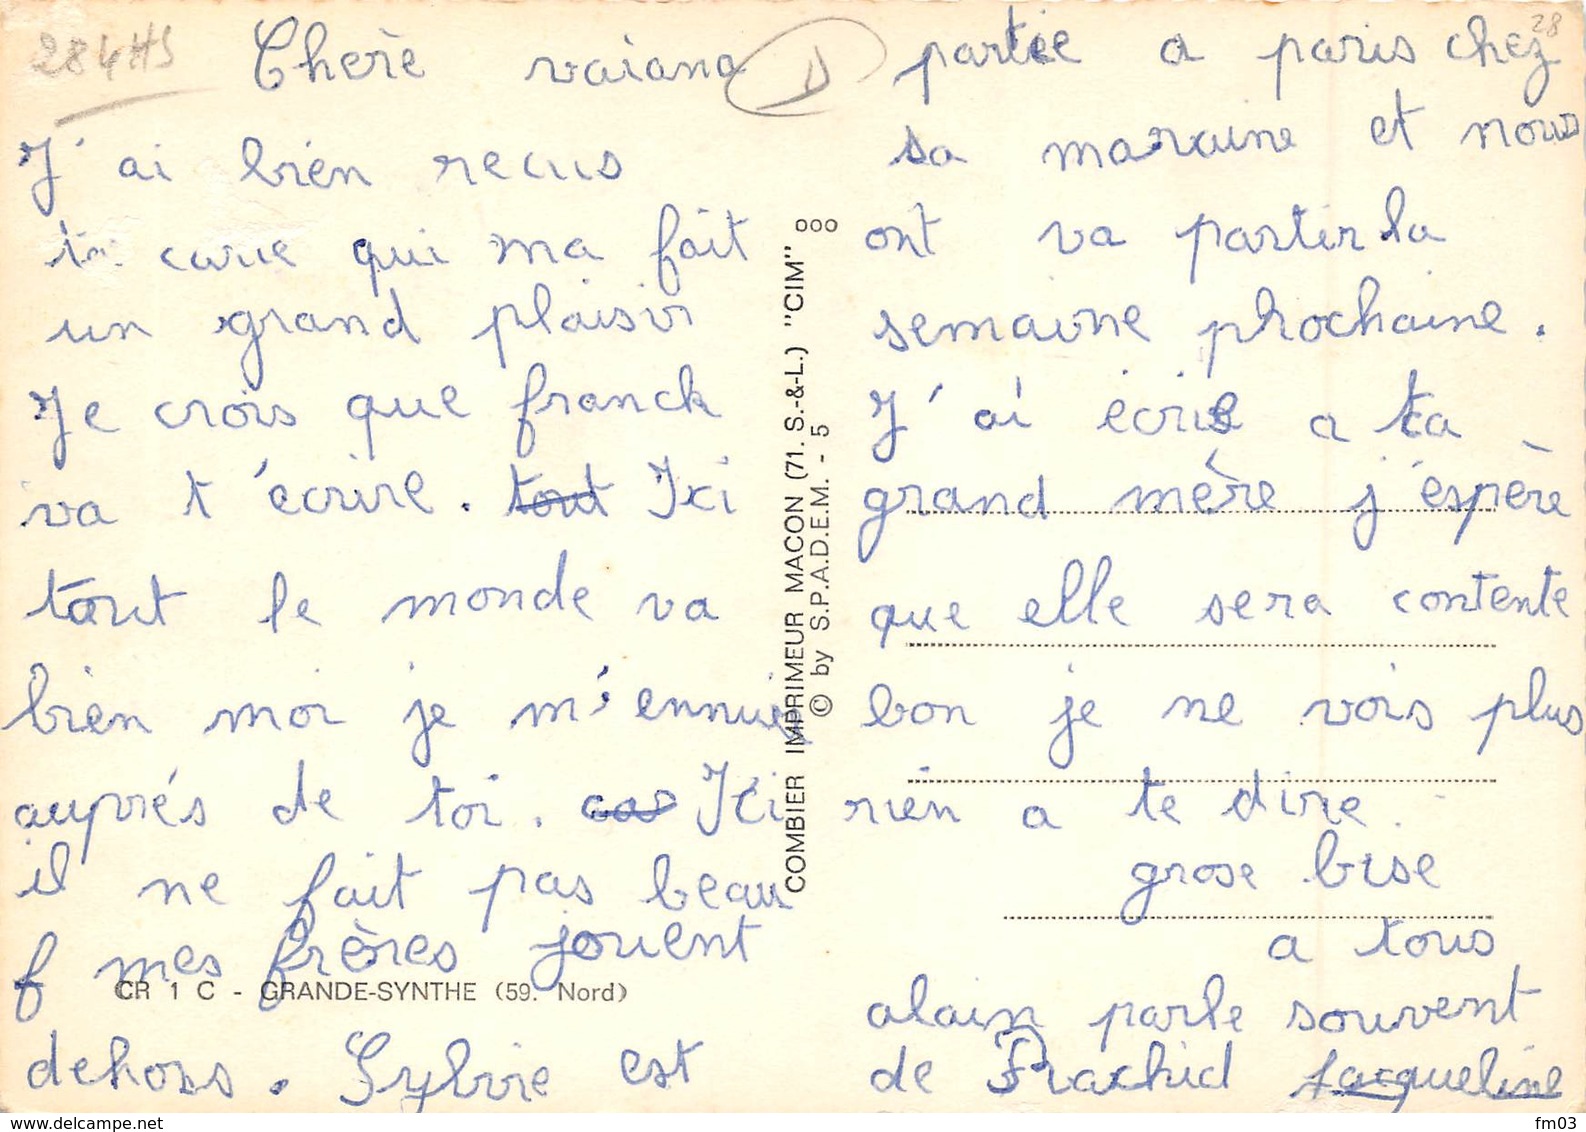 284HS
D
28
Cherè vaiana
J'ai bién recus
ta carte qui ma fait
un grand plaisir
Je crois que franck
va t'écrire. tout Ici
tout le monde va
bien moi je m'ennuie
auprés de toi. Ici
il ne fait pas beau
f mes frères jouent
CR 1 C - GRANDE-SYNTHE (59. Nord)
dehors. Sylvie est
COMBIER IMPRIMEUR MACON (71. S.-&-L.) "CIM"
© by S.P.A.D.E.M. - 5
partie a paris chez
sa maraine et nous
ont va partir la
semaine prochaine.
J'ai écrie a ta
grand mère j'éspère
que elle sera contente
bon je ne vois plus
rien a te dire.
grose bise
a tous
alain parle souvent
de Rachid Jacqueline
fm03